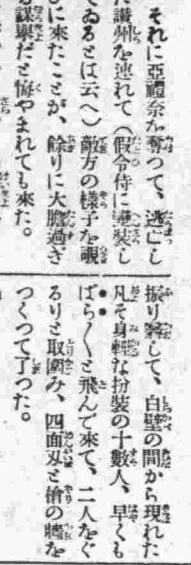 それに亞禮奈を奪つて、逃亡し
た讃州を連れて（假令侍に變裝し
てゐるとは云へ）敵方の樣子を覗
ひに來たことが、餘りに大膽過ぎ
る謀擧だと悔やまれても來た。
振り翳して、白壁の間から現れた
凡そ身輕な扮裝の十數人、早くも
ばら〱と飛んで來て、二人をぐ
るりと取圍み、四面刄と槍の牆を
つくつて了つた。